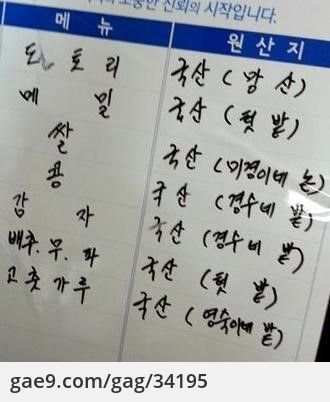 소중한 진뢰의 시작입니다.
메 뉴 원 산 지
도 토 리 국산 (앞 산)
메 밀 국산 (텃 밭)
쌀 국산 (미경이네 논)
콩 국산 (경수네 밭)
감 자 국산 (경수네 밭)
배추. 무. 파 국산 (텃 밭)
고춧가루 국산 (영숙이네 밭)
gae9.com/gag/34195